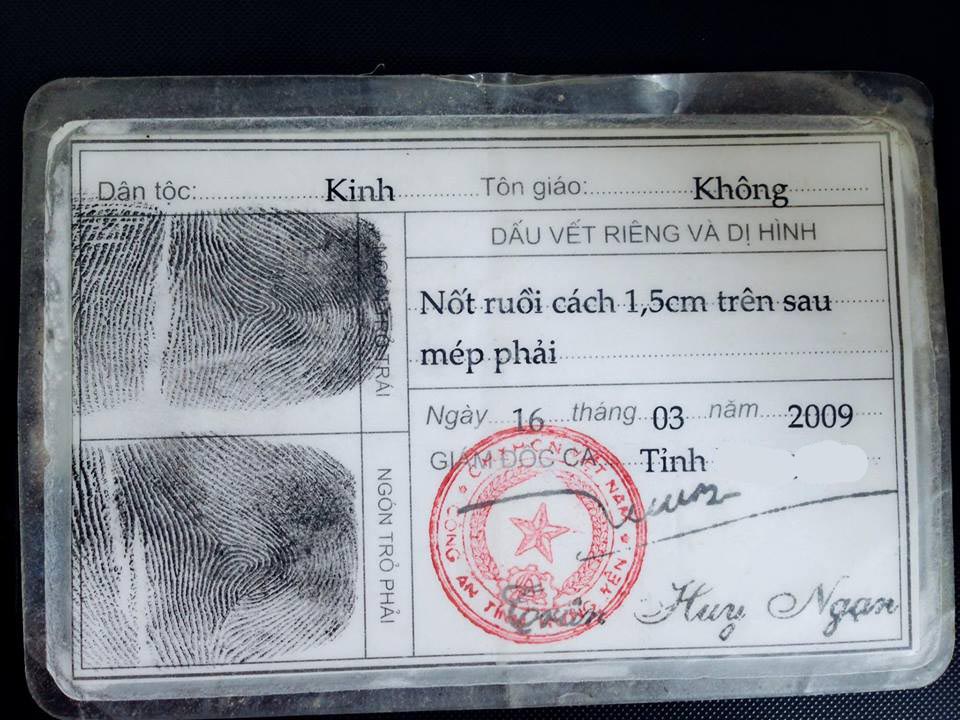 Dân tộc: Kinh Tôn giáo: Không
NGÓN TRỎ TRÁI
DẤU VẾT RIÊNG VÀ DỊ HÌNH
Nốt ruồi cách 1,5cm trên sau
mép phải
Ngày 16 tháng 03 năm 2009
GIÁM ĐỐC CA Tỉnh
NGÓN TRỎ PHẢI
CÔNG AN
VIỆT NAM
YÊN
Trần Huy Ngạn